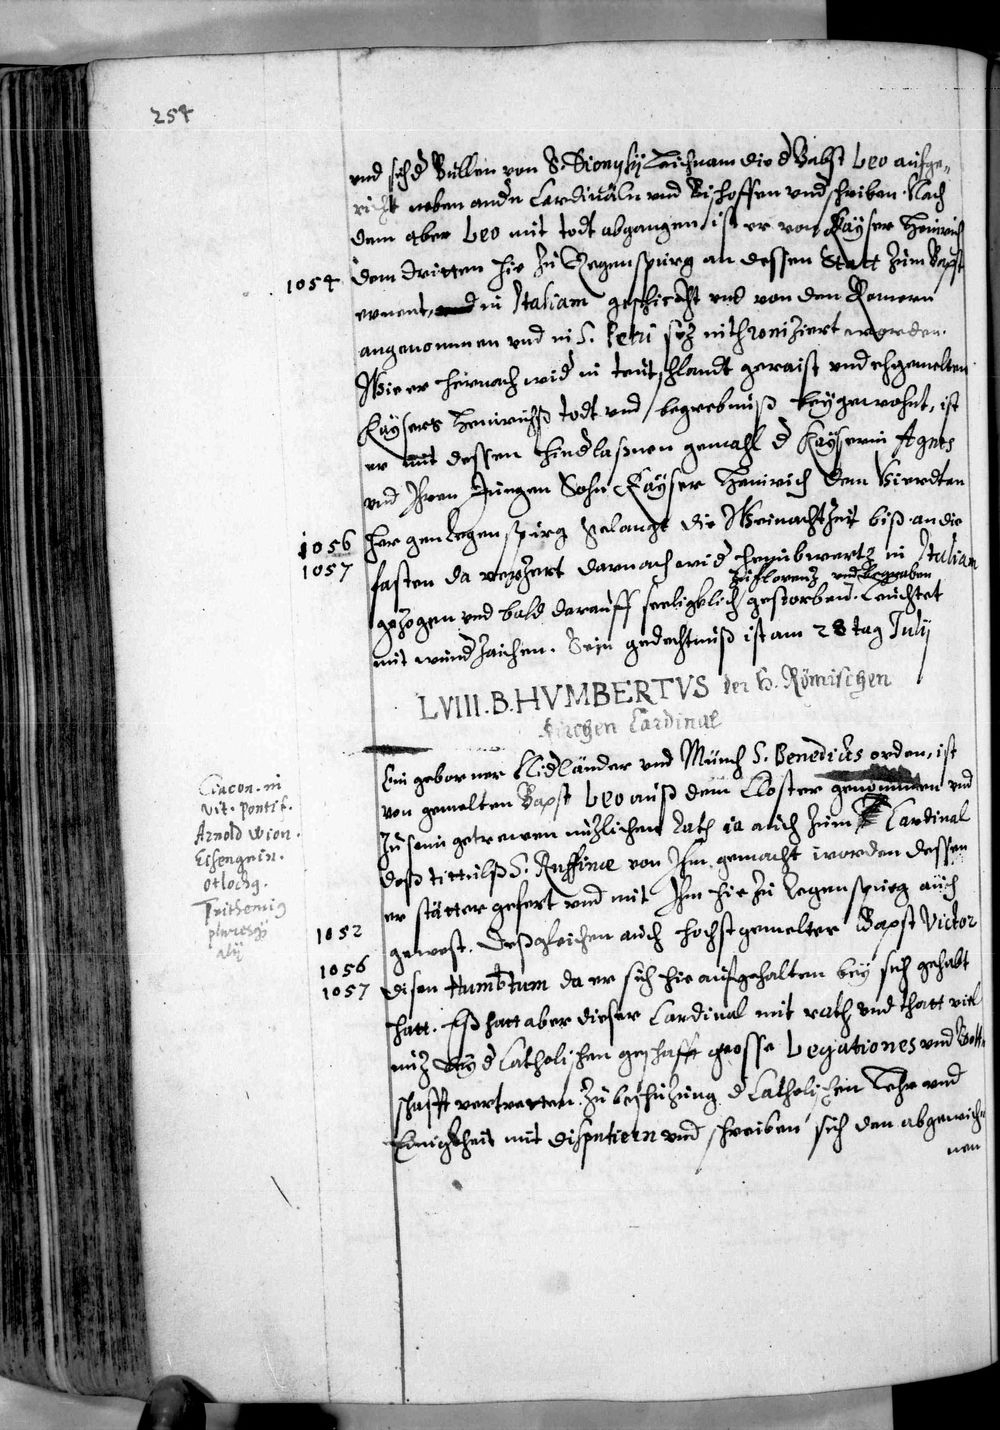 254
und sich d Bullen von S. Dionysij Leichnam die d Babst Leo aufge-
richt neben andn Cardinäln und Bischoffen undschriben. Nach
dem aber Leo mit todt abgangen ist er von Kayser Heinrich
1054 dem dritten hie zu Regenspurg an dessen Statt zum Bapst
ernent, in Italiam geschickht und von den Römern
angenommen und in S. Petri siz inthroniziert worden.
Wie er hernach wid in teutschlandt geraist und ehgemelten
Kaysers Heinrichß todt und begrebnuß beygewohnt, ist
er mit dessen hindlaßnen gemahl d Kayserin Agnes
und Ihren Jungen Sohn Kayser Heinrich dem Vierdten
1056 her gen Regenspurg gelangt die Weinachtzeit biß an die
1057 fasten da verzert darnach wid hinübwertz in Italiam
zu Florenz und begraben
gezogen und bald darauff seeligklich gestorben. Leuchtet
mit wundzaichen. Sein gedechtnuß ist am 28 tag Julij
LVIII. B. HVMBERTVS der H. Römischen
Kirchen Cardinal
Ein geborner Nidländer und Münch S. Benedictus orden, ist
von gemelten Bapst Leo auß dem Closter genommen und
zu seim getrewen nuzlichen rath ia auch zum Cardinal
deß tittulß S. Ruffinae von Ihm gemacht worden dessen
er stätter gefert und mit Ihm hie zu Regenspurg auch
1052 gewest. Deßgleichen auch hochstgemelter Bapst Victor
1056 disen Humbtum da er sich hie aufgehalten bey sich gehabt
1057 hatt. Eß hatt aber dieser Cardinal mit rath und thatt vil
nuz bey d Catholischen geschafft grosse Legationes und Bott-
schafft vertretten. Zu beschüzung d Catholischen Lehr und
Einigkheit mit disputiern und schreiben sich den abgewich-
nen
Ciacon. in
vit. pontif.
Arnold Wion.
Eisengrein.
otlochg.
Trithemig
pluresq
alij